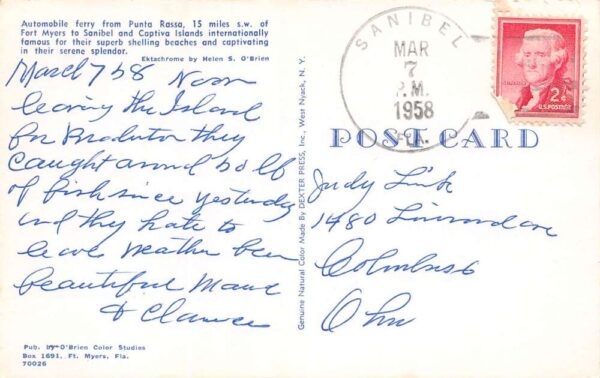 Automobile ferry from Punta Rassa, 15 miles s.w. of
Fort Myers to Sanibel and Captiva Islands internationally
famous for their superb shelling beaches and captivating
in their serene splendor.
Ektachrome by Helen S. O'Brien
March 7 58 Noon
leaving the Island
for Bradenton they
caught around 50 lb
of fish since yesterday
and they hate to
leave Weather been
beautiful Maude
& Clarence
Pub. by O'Brien Color Studies
Box 1691, Ft. Myers, Fla.
70026
Genuine Natural Color Made By DEXTER PRESS, Inc., West Nyack, N. Y.
SANIBEL
MAR
7
P.M.
1958
FLA.
2¢
U.S. POSTAGE
POST CARD
Judy Link
1480 ave
Columbus 6
Ohio